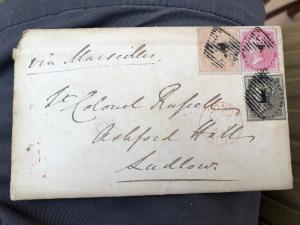 via Marseilles.
Lt Colonel Russell
Ashford Hall
Ludlow.